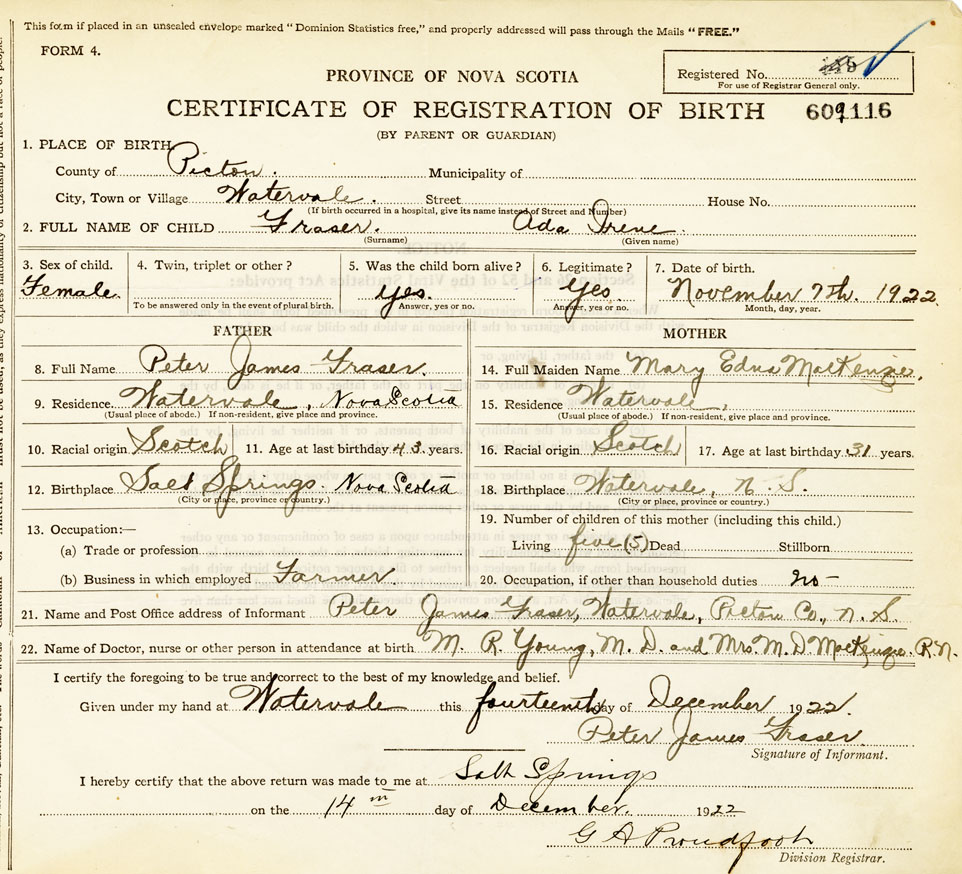 This form if placed in an unsealed envelope marked "Dominion Statistics free," and properly addressed will pass through the Mails "FREE."
FORM 4.
PROVINCE OF NOVA SCOTIA
Registered No.
For use of Registrar General only.
CERTIFICATE OF REGISTRATION OF BIRTH 609116
(BY PARENT OR GUARDIAN)
1. PLACE OF BIRTH
County of Picton. Municipality of
City, Town or Village Watervale. Street House No.
(If birth occurred in a hospital, give its name instead of Street and Number)
2. FULL NAME OF CHILD Fraser. Ada Irene.
(Surname) (Given name)
3. Sex of child. 4. Twin, triplet or other? 5. Was the child born alive? 6. Legitimate? 7. Date of birth.
Female. yes. yes. November 7th. 1922.
To be answered only in the event of plural birth. Answer, yes or no. Answer, yes or no. Month, day, year.
FATHER MOTHER
8. Full Name Peter James Fraser. 14. Full Maiden Name Mary Edna MacKenzie.
9. Residence. Watervale, Nova Scotia 15. Residence Watervale,
(Usual place of abode.) If non-resident, give place and province. (Usual place of abode.) If non-resident, give place and province.
10. Racial origin Scotch 11. Age at last birthday 43. years. 16. Racial origin Scotch 17. Age at last birthday 31 years.
12. Birthplace Salt Springs. Nova Scotia 18. Birthplace Watervale, N. S.
(City or place, province or country.) (City or place, province or country.)
13. Occupation:— 19. Number of children of this mother (including this child.)
(a) Trade or profession Living five (5) Dead Stillborn
(b) Business in which employed Farmer. 20. Occupation, if other than household duties no-
21. Name and Post Office address of Informant Peter James Fraser, Watervale, Picton Co., N. S.
22. Name of Doctor, nurse or other person in attendance at birth M. R. Young, M. D. and Mrs. M. D. MacKenzie. R.N.
I certify the foregoing to be true and correct to the best of my knowledge and belief.
Given under my hand at Watervale this fourteenth day of December 1922.
Peter James Fraser.
Signature of Informant.
I hereby certify that the above return was made to me at Salt Springs
on the 14th day of December. 1922
G A Proudfoot
Division Registrar.